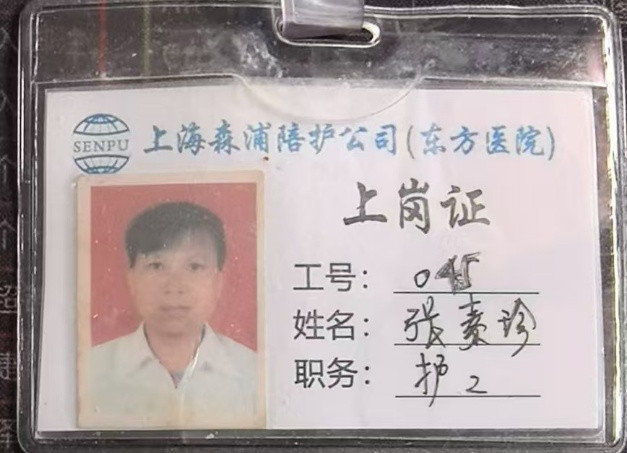 SENPU 上海森浦陪护公司(东方医院)
上岗证
工号： 045
姓名： 张素珍
职务： 护工